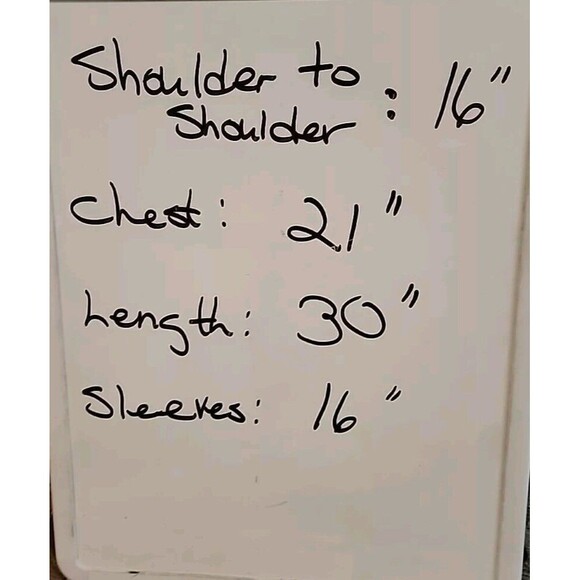 Shoulder to
Shoulder : 16"
Chest: 21"
Length: 30"
Sleeves: 16"